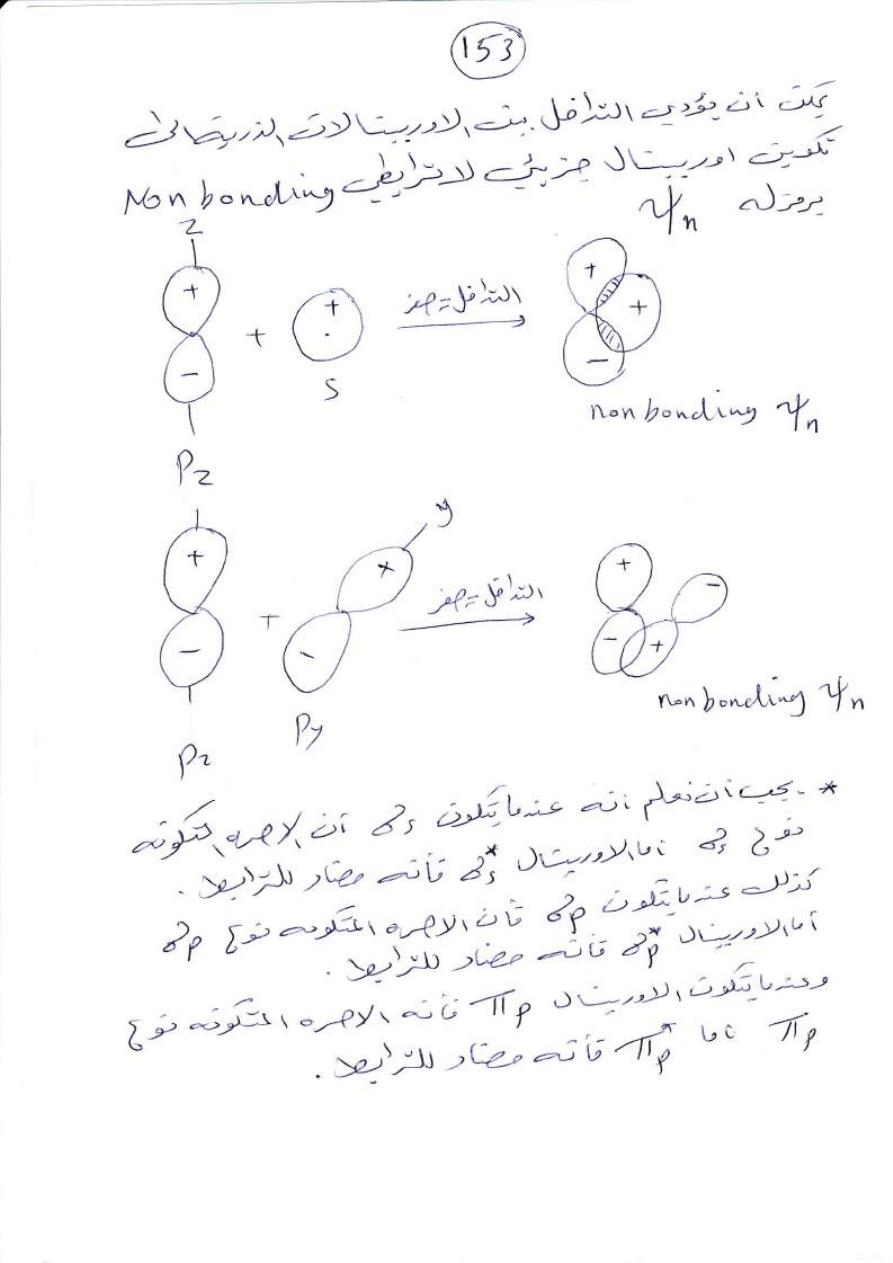 153
يمكن أن يؤدي التداخل بين الاوربيتالات الذرية الى
تكوين اوربيتال جزيئي لا ترابطي Non bonding
يرمز له Ψn
z
+
-
Pz
+
+
S
التداخل = صفر
+
+
-
non bonding Ψn
+
-
Pz
+
y
+
-
Py
التداخل = صفر
+
-
+
-
non bonding Ψn
* - يجب أن نعلم أنه عندما يتكون σs أن الاصره المتكونه
نوع σs أما الاوربيتال σs* فأنه مضاد للترابط .
كذلك عندما يتكون σp فأن الاصره المتكونه نوع σp
أما الاوربيتال σp* فأنه مضاد للترابط .
وعندما يتكون الاوربيتال πp فأنه الاصره المتكونه نوع
πp أما πp* فأنه مضاد للترابط .